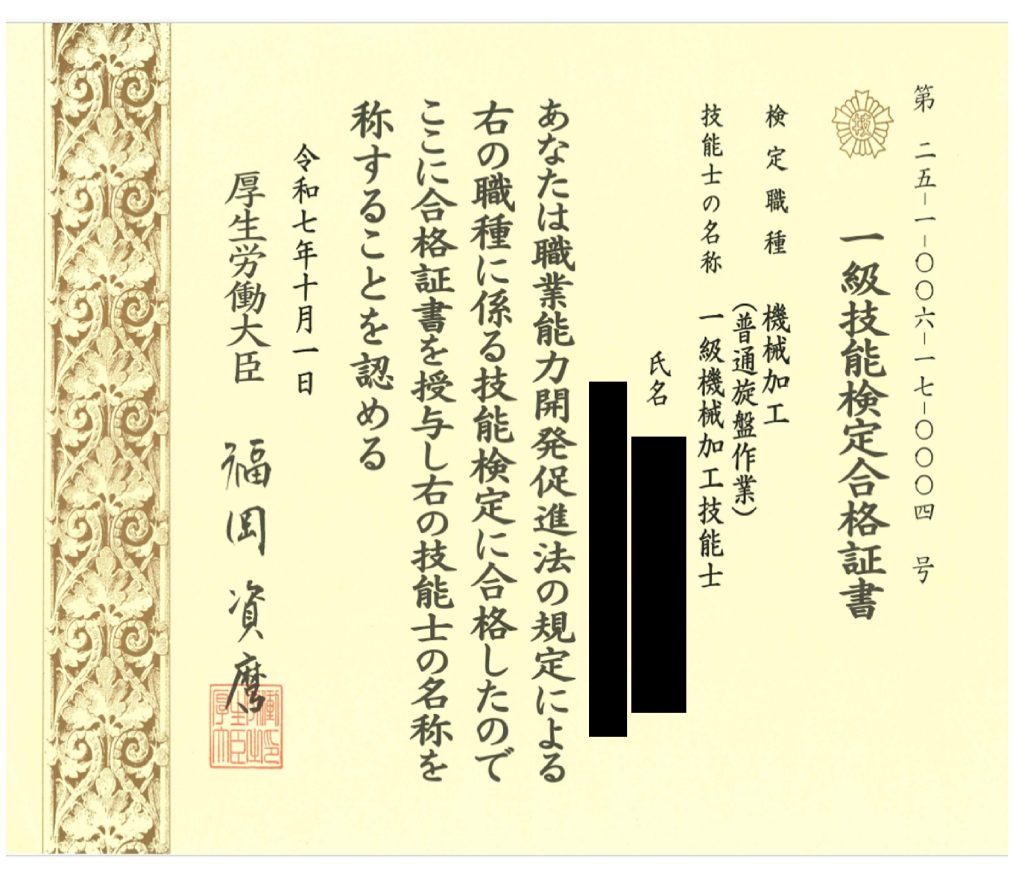 第 二五-一-〇〇六-一七-〇〇〇四 号
一級技能検定合格証書
検定職種 機械加工
(普通旋盤作業)
技能士の名称 一級機械加工技能士
氏名
あなたは職業能力開発促進法の規定による
右の職種に係る技能検定に合格したので
ここに合格証書を授与し右の技能士の名称を
称することを認める
令和七年十月一日
厚生労働大臣 福岡資麿